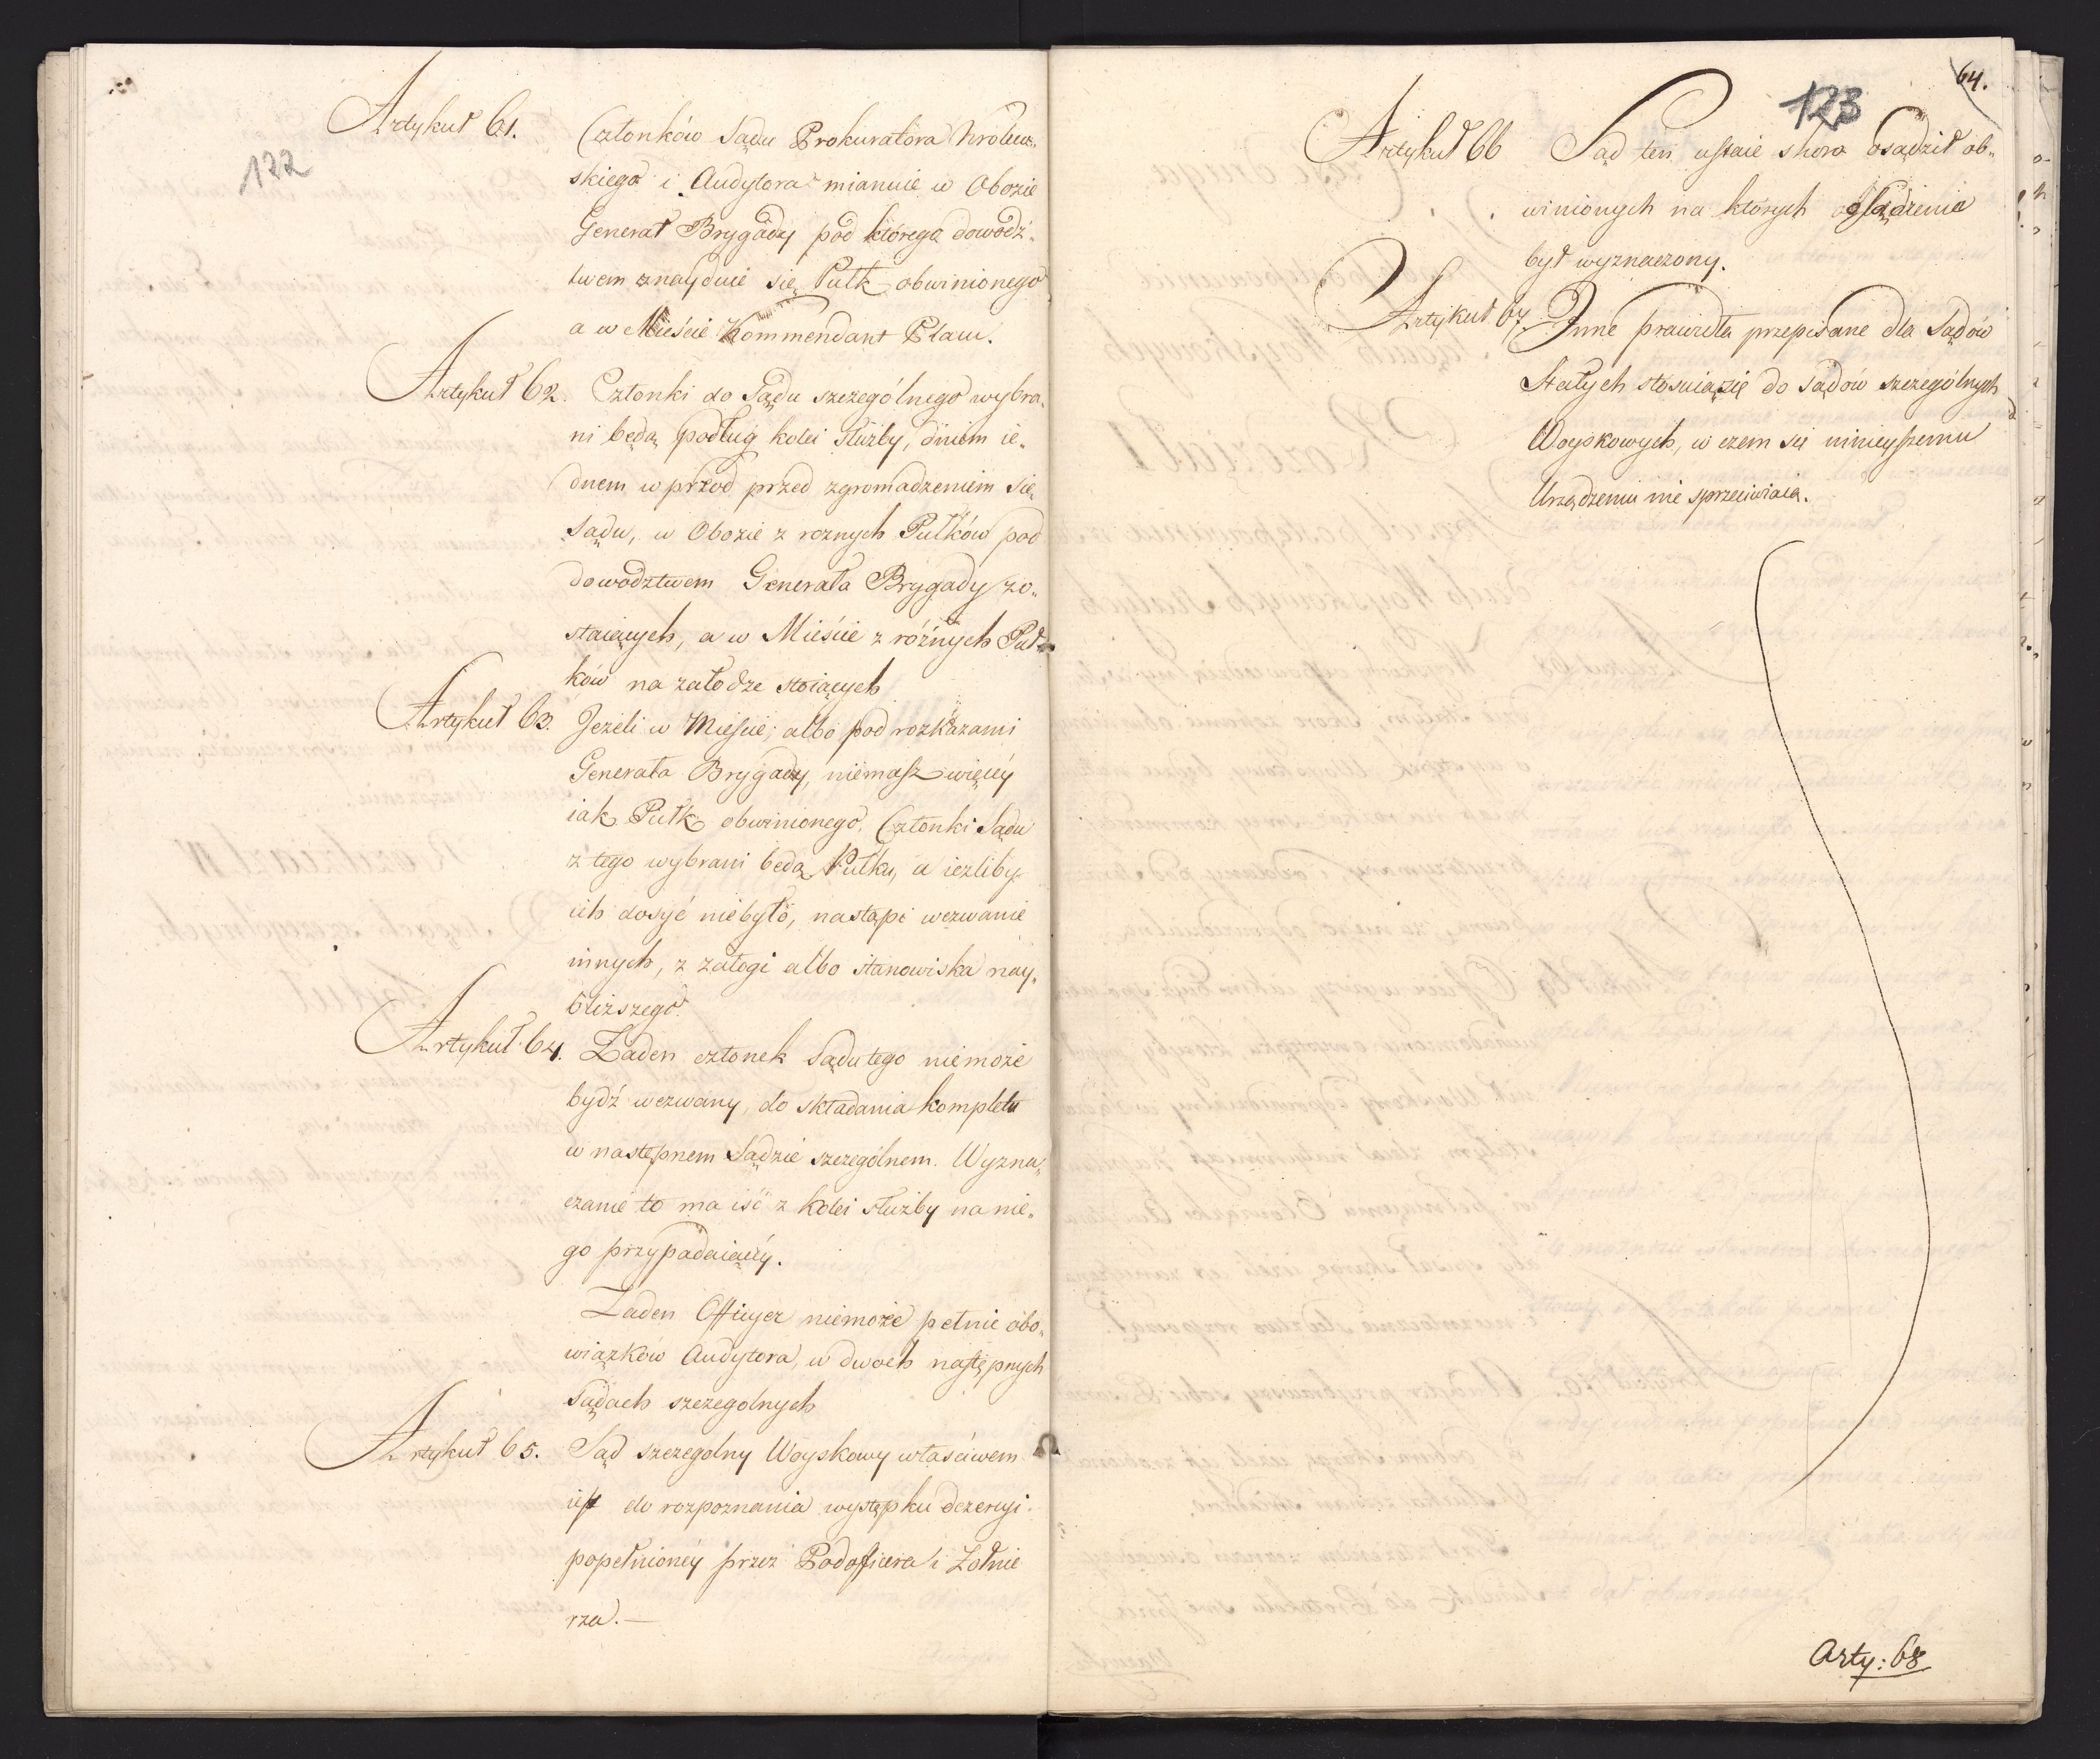 122
Artykuł 61.
Członków Sądu Prokuratora Krolew„
skiego i Audytora mianuie w Obozie
Generał Brygady pod którego dowódz„
twem znayduie się Pułk obwinionego
a w Mieście Kommendant Placu.
Artykuł 62.
Członki do Sądu szczególnego wybra„
ni będą podług kolei służby, dniem ie„
dnem wprzod przed zgromadzeniem się
Sądu, w Obozie z roznych Pułków pod
dowodztwem Generała Brygady zo„
staiących, a w Mieście z różnych Puł„
ków na załodze stoiących
Artykuł 63.
Jeżeli w Mieście, albo pod rozkazami
Generała Brygady, niemasz więcéy
iak Pułk obwinionego, Członki Sądu
z tego wybrani będą Pułku, a ieżliby
ich dosyć niebyło, nastąpi wezwanie
innych, z załogi albo stanowiska nay„
bliższego.
Artykuł 64.
Żaden członek Sądu tego niemoże
bydź wezwany, do składania kompletu
w następnem Sądzie szczególnem. Wyzna„
czanie to ma iść z kolei służby na nie„
go przypadaiącéy.
Żaden Officyer niemoże pełnic obo„
wiązków Audytora, w dwoch następnych
Sądach szczegolnych
Artykuł 65.
Sąd szczegolny Woyskowy właściwem
iest do rozpoznania występku dezercyi
popełnionéy przez Podofficera i Żołnie
rza.—
64.
123
Artykuł 66
Sąd ten ustaie skoro osądził ob„
winionych na których osądzenie
był wyznaczony.
Artykuł 67.
Inne prawidła przepisane dla Sądów
Stałych stosuią się do Sądów szczególnych
Woyskowych, w czem się ninieyszemu
Urządzeniu nie sprzeciwiaią.
Arty: 68